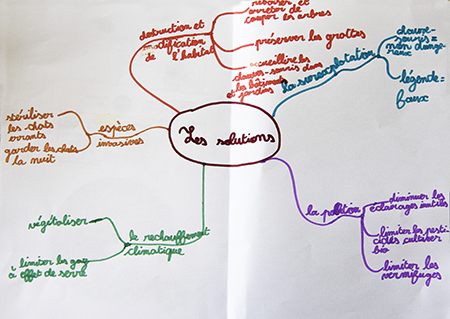 reboiser et
arreter de
couper les arbres
destruction et
modification
de l'habitat
préserver les grottes
accueillire les
chauve-souris dans
les bâtiments
et jardins
la surexploitation
chauve-
souris =
non dange-
reux
légende =
faux
Les solutions
stériliser
les chats
errants
garder les chats
la nuit
espèces
invasives
végétaliser
le rechauffement
climatique
limiter les gaz
à effet de serre
la polution
diminuer les
éclairages inutiles
limiter les pesti-
cides cultiver
bio
limiter les
vermifuges